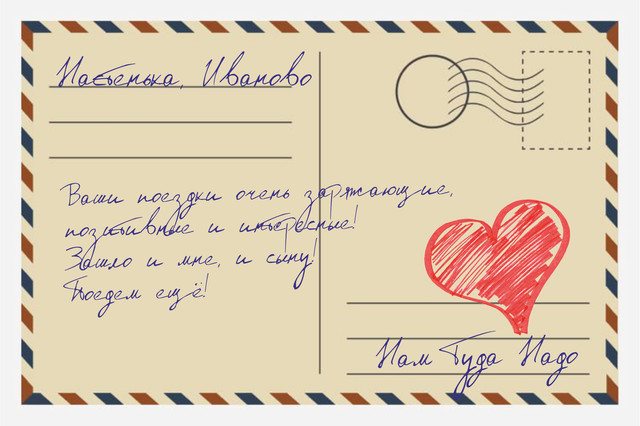 Настенька, Иваново
Ваши поездки очень заряжающие,
позитивные и интересные!
Зашло и мне, и сыну!
Поедем ещё!
Нам Туда Надо